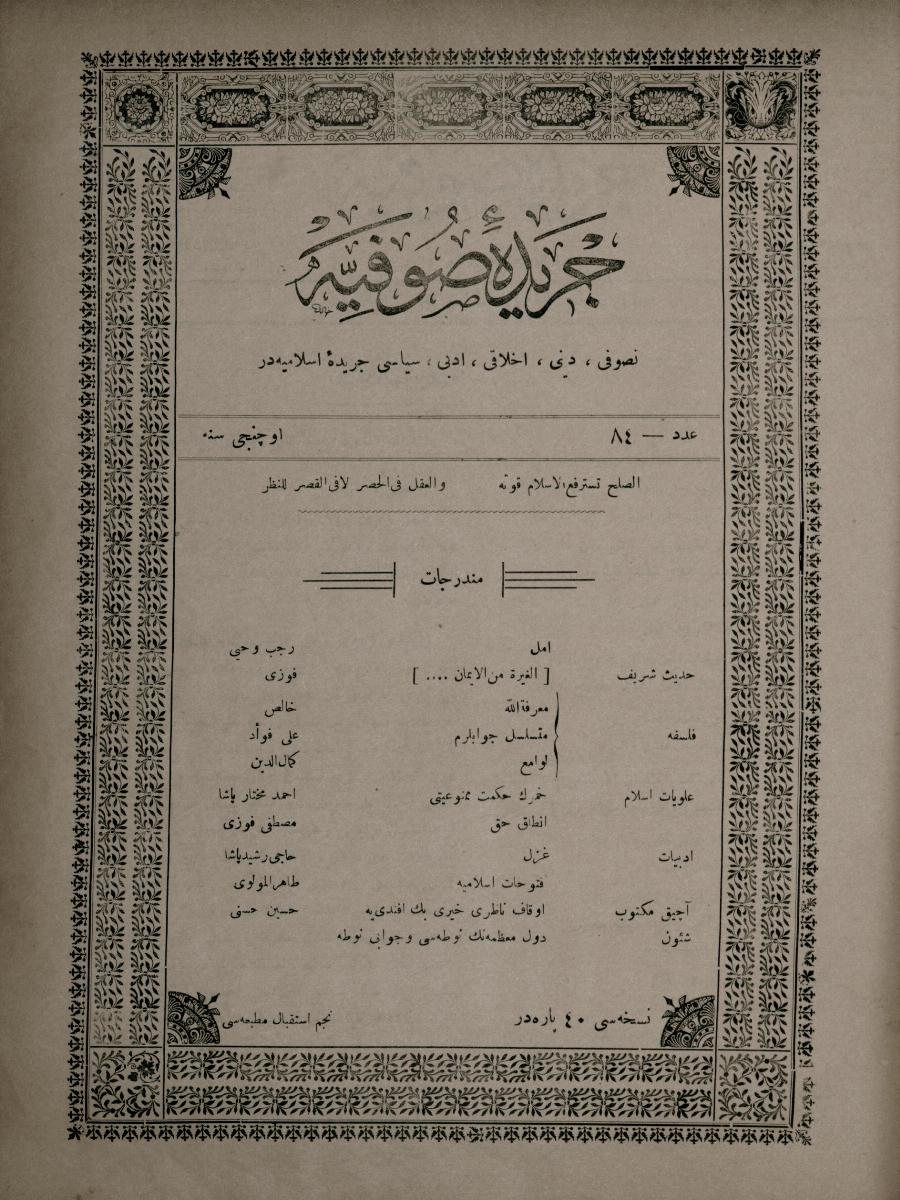 جريدهٔ صُوفيّه
تصوفى ، دينى ، اخلاقى ، ادبى ، سياسى جريدهٔ اسلاميه‌در
عدد — ٨٤ اوچنجى سنه
الصلح تسترفع الاسلام قوته والعقل فى الحصر لافى القصر للنظر
مندرجات
امل رجب وحيى
حديث شريف [ الغيرة من الايمان .... ] فوزى
معرفة‌الله خالص
فلسفه متسلسل جوابلرم على فوأد
لوامع كمال‌الدين
علويات اسلام خمرك حكمت ممنوعيتى احمد مختار پاشا
انطاق حق مصطفى فوزى
ادبيات غزل حاجى رشيد پاشا
فتوحات اسلاميه طاهرالمولوى
آچيق مكتوب اوقاف ناظرى خيرى بك افندى‌يه حسين حسنى
شئون دول معظمه‌نك نوطه‌سى وجوابى نوطه
نسخه‌سى ٤٠ پاره‌در نجم استقبال مطبعه‌سى